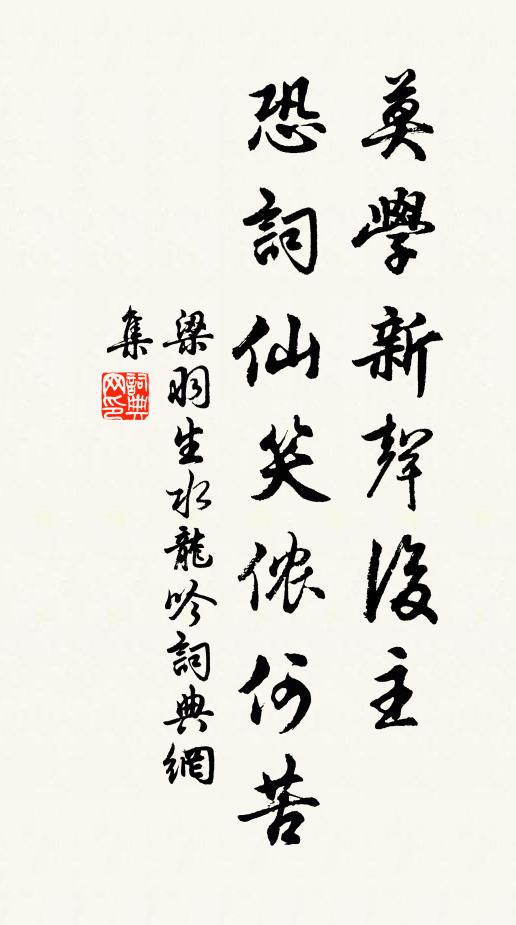 莫學新聲後主
恐詞仙笑侬何苦
梁羽生水龍吟詞典網
集
詞典
网印